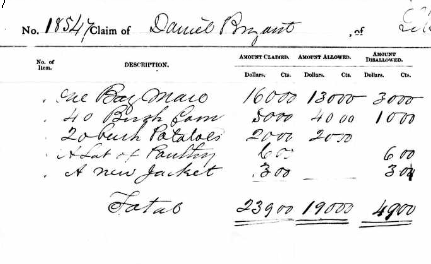 No. 18547 Claim of Daniel Bryant, of
No. of Item. DESCRIPTION. AMOUNT CLAIMED. AMOUNT ALLOWED. AMOUNT DISALLOWED.
Dollars. Cts. Dollars. Cts. Dollars. Cts.
one Bay Mare 160 00 130 00 30 00
40 Bush Corn 50 00 40 00 10 00
20 bush Potatoes 20 00 20 00
A Lot of Poultry 6 00 6 00
A new Jacket 3 00 3 00
Total 239 00 190 00 49 00